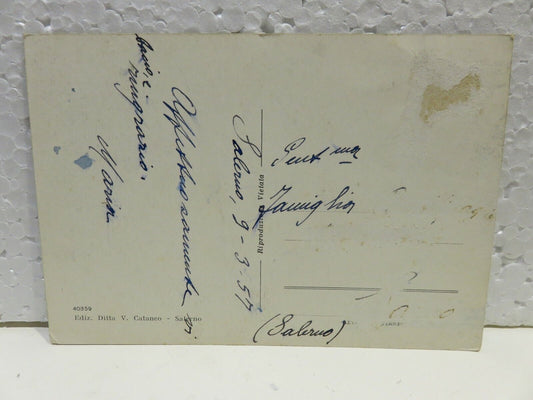 Salerno, 9-3-57
Affettuosamente vi
bacio, e
ringrazio.
Maria
Gent.ma
Famiglia
(Salerno)
Riproduzione Vietata
40359
Ediz. Ditta V. Cataneo - Salerno